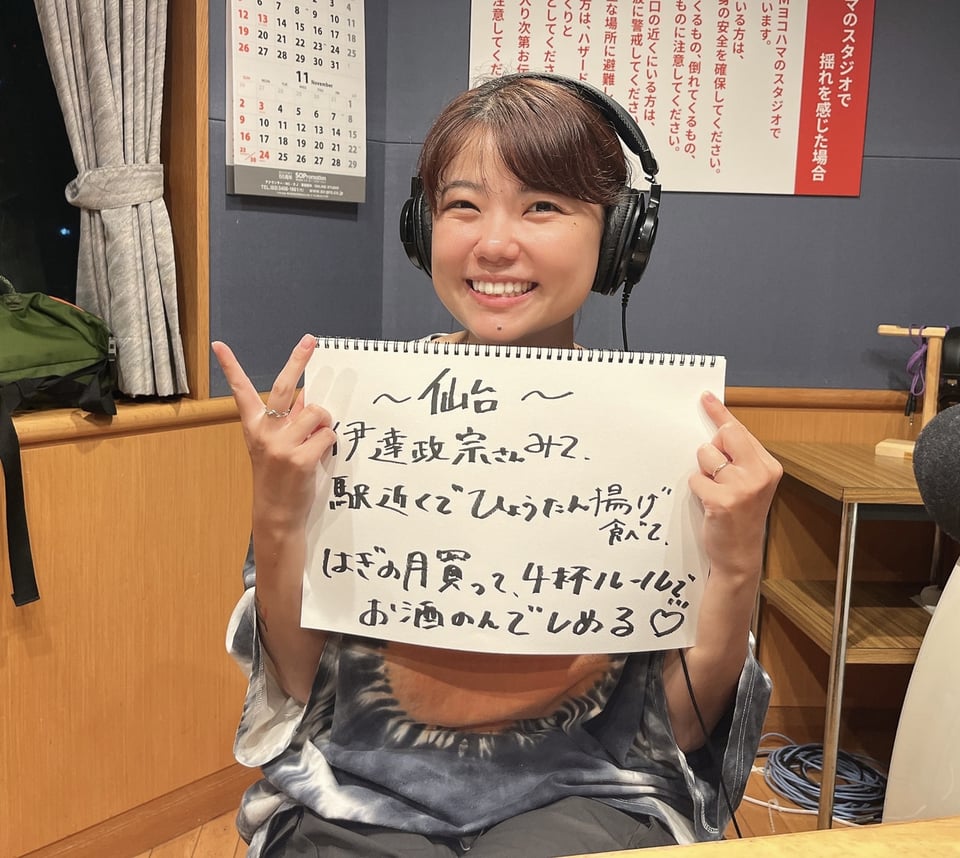 ～仙台～
伊達政宗さんみて、
駅近くでひょうたん揚げ
食べて、
はぎの月買って、4杯ルールで
お酒のんでしめる♡
マのスタジオで
揺れを感じた場合
ヨコハマのスタジオで
います。
いる方は、
身の安全を確保してください。
くるもの、倒れてくるもの、
ものに注意してください。
口の近くにいる方は、
に警戒してください。
な場所に避難し
方は、ハザード
くりと
としてくださ
入り次第お伝
注意してくだ
5 6 7 8 9 10 11
12 13 14 15 16 17 18
19 20 21 22 23 24 25
26 27 28 29 30 31
11 November
SUN MON TUE WED THU FRI SAT
1
2 3 4 5 6 7 8
9 10 11 12 13 14 15
16 17 18 19 20 21 22
23/30 24 25 26 27 28 29
SOPromotion